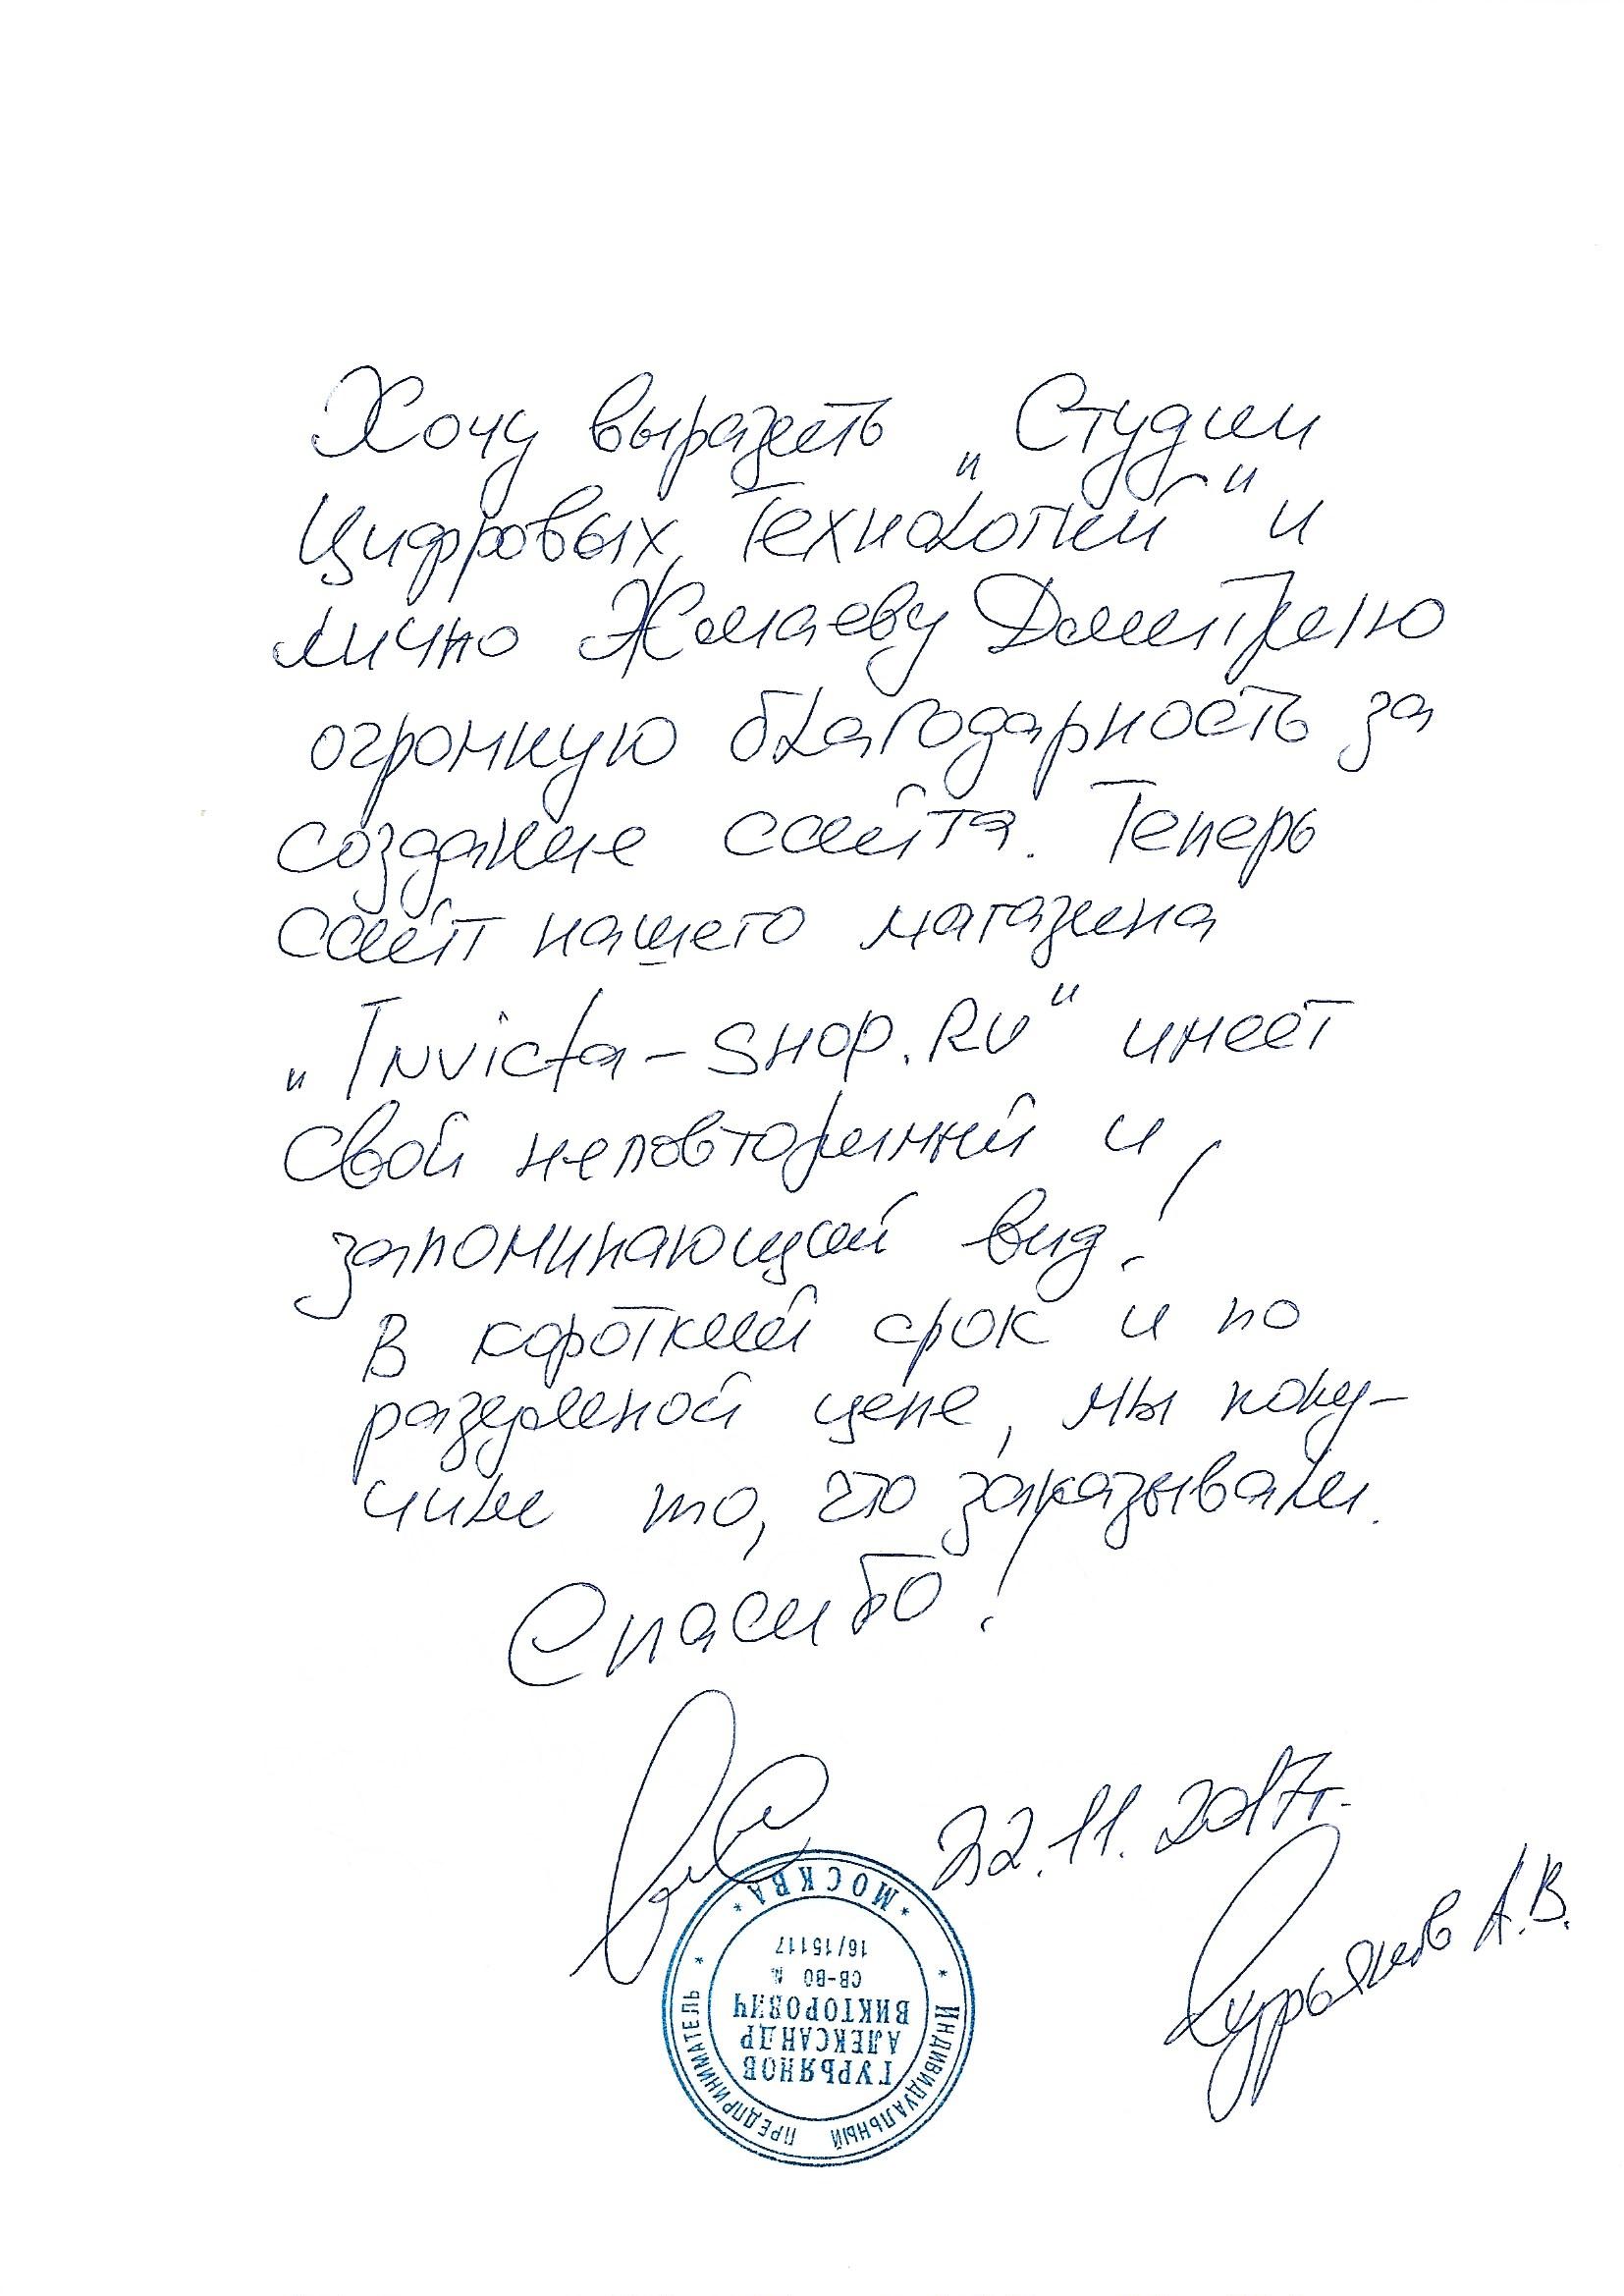 Хочу выразить „Студии
Цифровых Технологий“ и
лично Жмаеву Дмитрию
огромную благодарность за
создание сайта. Теперь
сайт нашего магазина
„Invicta-SHOP.RU“ имеет
свой неповторимый и
запоминающий вид!
В короткий срок и по
разумной цене, мы полу-
чили то, что заказывали.
Спасибо!
22.11.2017г.
Гурьянов А.В.
* МОСКВА *
* ИНДИВИДУАЛЬНЫЙ ПРЕДПРИНИМАТЕЛЬ *
ГУРЬЯНОВ
АЛЕКСАНДР
ВИКТОРОВИЧ
СВ-ВО №
16/15117